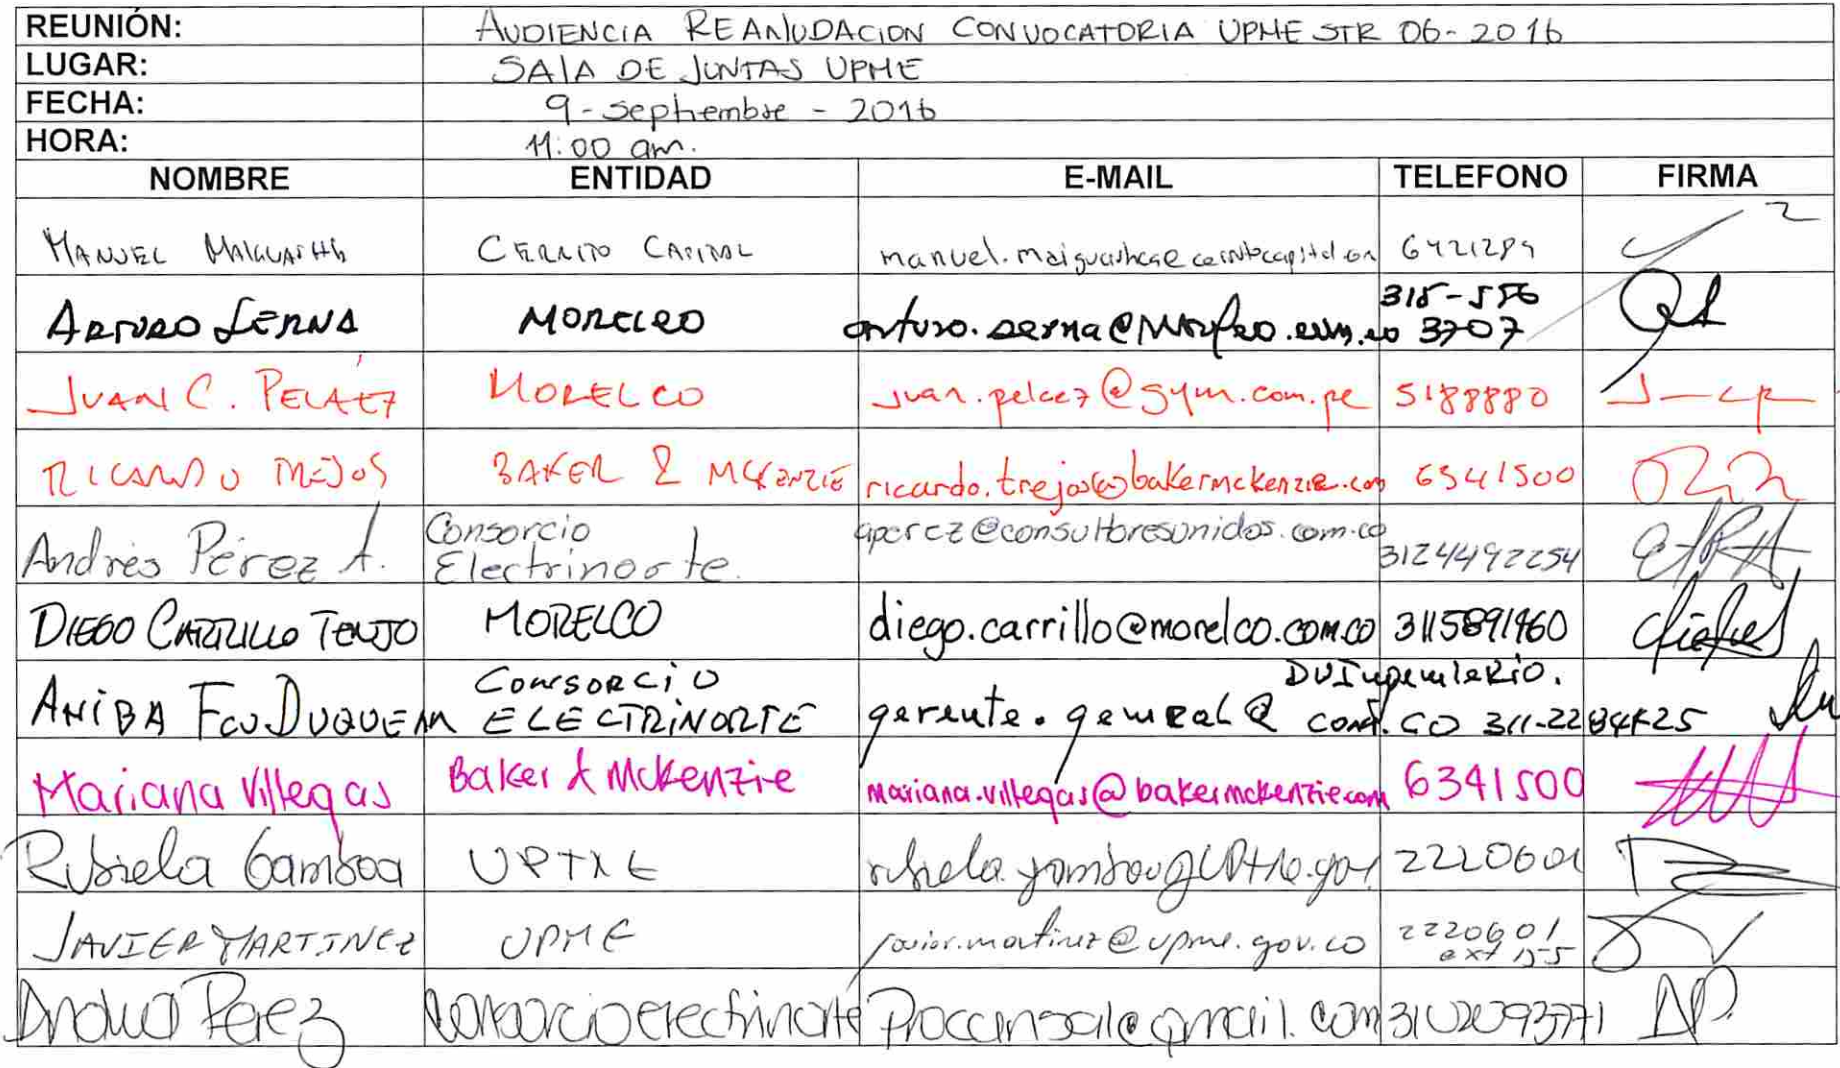 REUNIÓN: AUDIENCIA REANUDACION CONVOCATORIA UPME STR 06-2016
LUGAR: SALA DE JUNTAS UPME
FECHA: 9-septiembre-2016
HORA: 11:00 am.
NOMBRE ENTIDAD E-MAIL TELEFONO FIRMA
MANUEL CERRITO CAPITAL 6421289
ARTURO SERNA MORELCO arturo.serna@ 315-556 3707
JUAN C. PELAEZ MORELCO juan.pelaez@gym.com.pe 5188880
RICARDO TREJOS BAKER & MCKENZIE ricardo.trejos@bakermckenzie.com 6341500
Andrés Pérez A. Consorcio Electrinorte. aperez@consultoresunidos.com.co 3124492254
DIEGO CARRILLO TENJO MORELCO diego.carrillo@morelco.com.co 3115891960
ANIBA Fco DUQUE CONSORCIO ELECTRINORTE gerente.general@
Mariana Villegas Baker & McKenzie mariana.villegas@bakermckenzie.com 6341500
Rubiela Gamboa UPME 2220601
JAVIER MARTINEZ UPME javier.martinez@upme.gov.co 2220601 ext 155
Perez consorcio electrinorte AP.